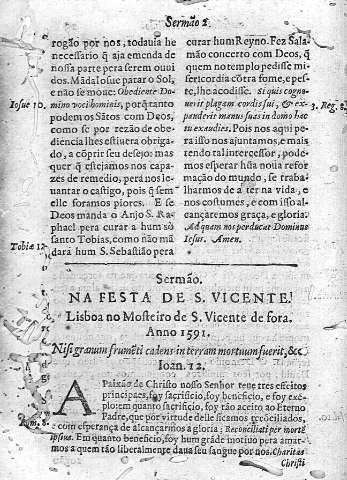 Sermão 2.
rogão por nos, todauia he
necessario q̃ aja emenda de
nossa parte pera serem ouui
dos. Mãda Iosue parar o Sol,
e não se moue: Obediente Do-
Iosue 10.
mino voci hominis, porq̃ tanto
podem os Sãtos com Deos,
como se por rezão de obe-
diência lhes estiuera obriga-
do, a cõprir seu desejo; mas
quer q̃ estejamos nos capa-
zes de remedio, pera nos le-
uantar o castigo, pois q̃ sem
elle foramos piores. E se
Deos manda o Anjo S. Ra-
phael pera curar a hum só
santo Tobias, como não mã
Tobiæ 12.
dará hum S. Sebastião pera
curar hum Reyno. Fez Sala-
mão concerto com Deos, q̃
quem no templo pedisse mi-
sericordia cõtra fome, e pes-
te, lhe acodisse. Si quis cogno-
uerit plagam cordis sui, & ex-
3. Reg. 8.
panderit manus suas in domo hac
tu exaudies. Pois nos aqui pe-
ra isso nos ajuntamos, e mais
tendo tal intercessor, pode-
mos esperar hũa noua refor
mação do mundo, se traba-
lharmos de a ter na vida, e
nos costumes, e com isso al-
cançaremos graça, e gloria.
Ad quam nos perducat Dominus
Iesus. Amen.
Sermão.
NA FESTA DE S. VICENTE.
Lisboa no Mosteiro de S. Vicente de fora.
Anno 1591.
Nisi granum frumẽti cadens in terram mortuum fuerit, &c
Ioan. 12.
A Paixão de Christo nosso Senhor teue tres effeitos
principaes, foy sacrificio, foy beneficio, e foy exẽ-
plo: em quanto sacrificio, foy tão aceito ao Eterno
Padre, que por virtude delle ficamos recõciliados,
Rom. 5.
com esperança de alcançarmos a gloria: Reconciliati per mortẽ
ipsius. Em quanto beneficio, foy hum grãde motiuo pera amar-
mos a quem tão liberalmente daua seu sangue por nos. Charitas
Christi